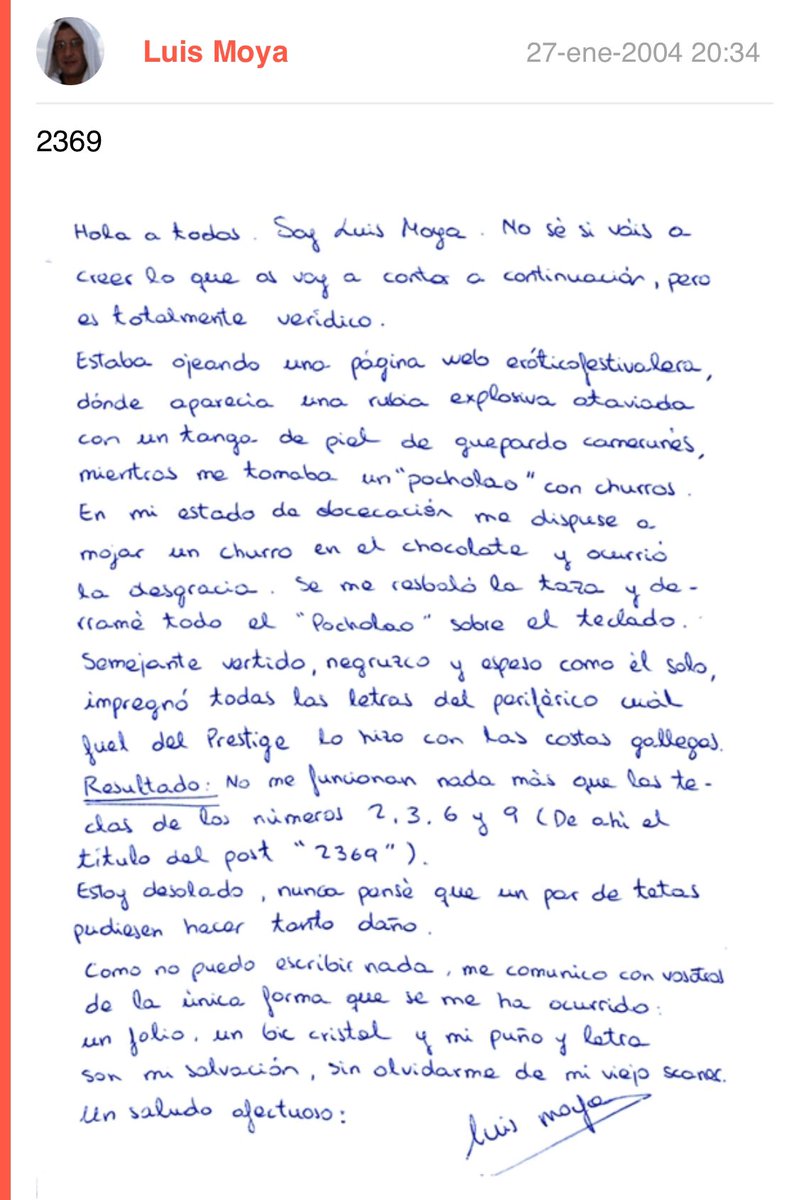 Luis Moya
27-ene-2004 20:34
2369
Hola a todos. Soy Luis Moya. No sè si vàis a
creer lo que os voy a contar a continuaciòn, pero
es totalmente verìdico.
Estaba ojeando una pàgina web eròticofestivalera,
dónde aparecia una rubia explosiva ataviada
con un tanga de piel de guepardo camerunès,
mientras me tomaba un "pocholao" con churros.
En mi estado de obcecaciòn me dispuse a
mojar un churro en el chocolate y ocurriò
la desgracia. Se me resbalò la taza y de-
rramè todo el "Pocholao" sobre el teclado.
Semejante vertido, negruzco y espeso como èl solo,
impregnó todas las letras del perifèrico cuàl
fuel del Prestige lo hizo con las costas gallegas.
Resultado: No me funcionan nada màs que las te-
clas de los números 2, 3, 6 y 9 (De ahi el
título del post "2369").
Estoy desolado, nunca pensè que un par de tetas
pudiesen hacer tanto daño.
Como no puedo escribir nada, me comunico con vosotros
de la ùnica forma que se me ha ocurrido:
un folio, un bic cristal y mi puño y letra
son mi salvación, sin olvidarme de mi viejo scaner.
Un saludo afectuoso:
luis moya